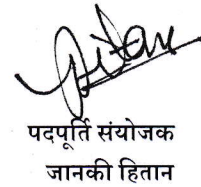 पदपूर्ति संयोजक
जानकी हितान